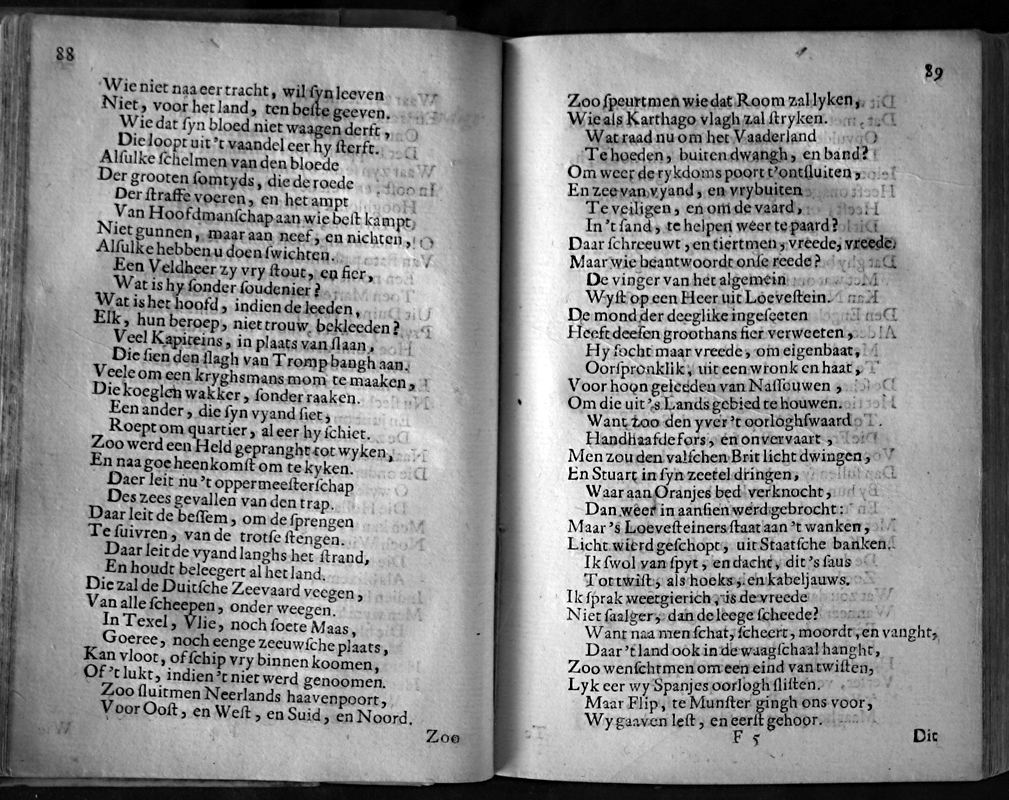 88
Wie niet naa eer tracht, wil ſyn leeven
Niet, voor het land, ten beſte geeven.
Wie dat ſyn bloed niet waagen derft,
Die loopt uit 't vaandel eer hy ſterft.
Alſulke ſchelmen van den bloede
Der grooten ſomtyds, die de roede
Der ſtraffe voeren, en het ampt
Van Hoofdmanſchap aan wie beſt kampt,
Niet gunnen, maar aan neef, en nichten,
Alſulke hebben u doen ſwichten.
Een Veldheer zy vry ſtout, en fier,
Wat is hy ſonder ſoudenier?
Wat is het hoofd, indien de leeden,
Elk, hun beroep, niet trouw, bekleeden?
Veel Kapiteins, in plaats van ſlaan,
Die ſien den ſlagh van Tromp bangh aan.
Veele om een kryghsmans mom te maaken,
Die koeglen wakker, ſonder raaken.
Een ander, die ſyn vyand ſiet,
Roept om quartier, al eer hy ſchiet.
Zoo werd een Held gepranght tot wyken,
En naa goe heenkomſt om te kyken.
Daer leit nu 't oppermeeſterſchap
Des zees gevallen van den trap.
Daar leit de beſſem, om de ſprengen
Te ſuivren, van de trotſe ſtengen.
Daar leit de vyand langhs het ſtrand,
En houdt beleegert al het land.
Die zal de Duitſche Zeevaard veegen,
Van alle ſcheepen, onder weegen.
In Texel, Vlie, noch ſoete Maas,
Goeree, noch eenge zeeuwſche plaats,
Kan vloot, of ſchip vry binnen koomen,
Of 't lukt, indien 't niet werd genoomen.
Zoo ſluitmen Neerlands haavenpoort,
Voor Ooſt, en Weſt, en Suid, en Noord.
Zoo
89
Zoo ſpeurtmen wie dat Room zal lyken,
Wie als Karthago vlagh zal ſtryken.
Wat raad nu om het Vaaderland
Te hoeden, buiten dwangh, en band?
Om weer de rykdoms poort t'ontſluiten,
En zee van vyand, en vrybuiten
Te veiligen, en om de vaard,
In 't ſand, te helpen weer te paard?
Daar ſchreeuwt, en tiertmen, vreede, vreede.
Maar wie beantwoordt onſe reede?
De vinger van het algemein
Wyſt op een Heer uit Loeveſtein.
De mond der deeglike ingeſeeten
Heeft deeſen groothans fier verweeten,
Hy ſocht maar vreede, om eigenbaat,
Oorſpronklik, uit een wronk en haat,
Voor hoon geleeden van Naſſouwen,
Om die uit 's Lands gebied te houwen.
Want zoo den yver 't oorloghſwaard
Handhaafde fors, en onvervaart,
Men zou den valſchen Brit licht dwingen,
En Stuart in ſyn zeetel dringen,
Waar aan Oranjes bed verknocht,
Dan weer in aanſien werd gebrocht:
Maar 's Loeveſteiners ſtaat aan 't wanken,
Licht wierd geſchopt, uit Staatſche banken.
Ik ſwol van ſpyt, en dacht, dit 's ſaus
Tot twiſt, als hoeks, en kabeljauws.
Ik ſprak weetgierich, is de vreede
Niet ſaalger, dan de leege ſcheede?
Want naa men ſchat, ſcheert, moordt, en vanght,
Daar 't land ook in de waagſchaal hanght,
Zoo wenſchtmen om een eind van twiſten,
Lyk eer wy Spanjes oorlogh ſliſten.
Maar Flip, te Munſter gingh ons voor,
Wy gaaven leſt, en eerſt gehoor.
F 5
Dit